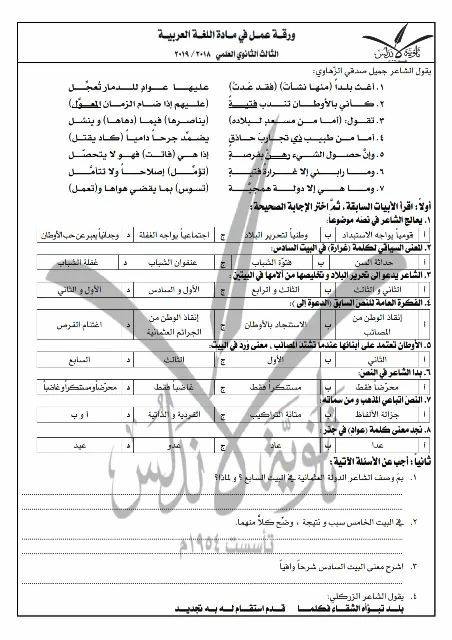 ورقة عمل في مادة اللغة العربية
الثالث الثانوي العلمي ٢٠١٨ / ٢٠١٩
ثانوية الأندلس
يقول الشاعر جميل صدقي الزهاوي:
١. أغث بلداً (منها نشأت) (فقد عدت) عليهـا عـوادٍ للـدمار تُعجـّل
٢. كـأني بالأوطـان تنـدب فتيـةً (عليهم إذا ضـام الزمـان المعـوّل)
٣. تقـول: (أمـا مـن مسـعدٍ لـبلاده) (يناصـرها) فيمـا (دهاهـا) و ينشـل
٤. أمـا مـن طبيـب ذي تجـارب حـاذقٍ يضمّـد جرحـاً داميـاً (كـاد يقتـل)
٥. وإنّ حصـول الشـيء رهـنٌ بفرصـةٍ إذا هـي (فاتـت) فهـو لا يتحصّـل
٦. ومـا رابـني إلا غـرارة فتيـةٍ (تؤمـّل) إصـلاحاً ولا تتأمـّل
٧. ومـا هـي إلا دولـة همجيـّة (تسوس) بما يقضي هواها (وتعمل)
أولاً: اقرأ الأبيات السابقة، ثمّ اختر الإجابة الصحيحة:
١. يعالج الشاعر في نصه موضوعاً:
أ قومياً يواجه الاستبداد ب وطنياً لتحرير البلاد ج اجتماعياً يواجه الغفلة د وجدانياً يعبر عن حب الأوطان
٢. المعنى السياقي لكلمة (غرارة) في البيت السادس:
أ حداثة السن ب فتوّة الشباب ج عنفوان الشباب د غفلة الشباب
٣. الشاعر يدعو إلى تحرير البلاد وتخليصها من آلامها في البيتين:
أ الثاني و الثالث ب الثالث و الرابع ج الأول و السادس د الأول و الثاني
٤. الفكرة العامة للنص السابق (الدعوة إلى):
أ إنقاذ الوطن من المصائب ب الاستنجاد بالأوطان ج إنقاذ الوطن من الجرائم العثمانية د اغتنام الفرص
٥. الأوطان تعتمد على أبنائها عندما تشتد المصائب، معنى ورد في البيت:
أ الثاني ب الأول ج الثالث د السابع
٦. بدا الشاعر في النص:
أ محرّضاً فقط ب مستنكراً فقط ج غاضباً فقط د محرّضاً ومستنكراً وغاضباً
٧. النص اتباعي المذهب و من سماته:
أ جزالة الألفاظ ب متانة التراكيب ج الفردية و الذاتية د أ و ب
٨. نجد معنى كلمة (عواد) في جذر:
أ عدا ب عاد ج عدو د عيد
ثانياً: أجب عن الأسئلة الآتية:
١. بم وصف الشاعر الدولة العثمانية في البيت السابع ؟ و لماذا؟
٢. في البيت الخامس سبب و نتيجة ، وضّح كلاً منهما.
٣. اشرح معنى البيت السادس شرحاً وافياً
٤. يقول الشاعر الزركلي:
بلـد تبـوّأه الشـقاء فكلمـا قـدم استقام لـه بـه تجديـد
ثانوية الأندلس
تأسست ١٩٥٤م